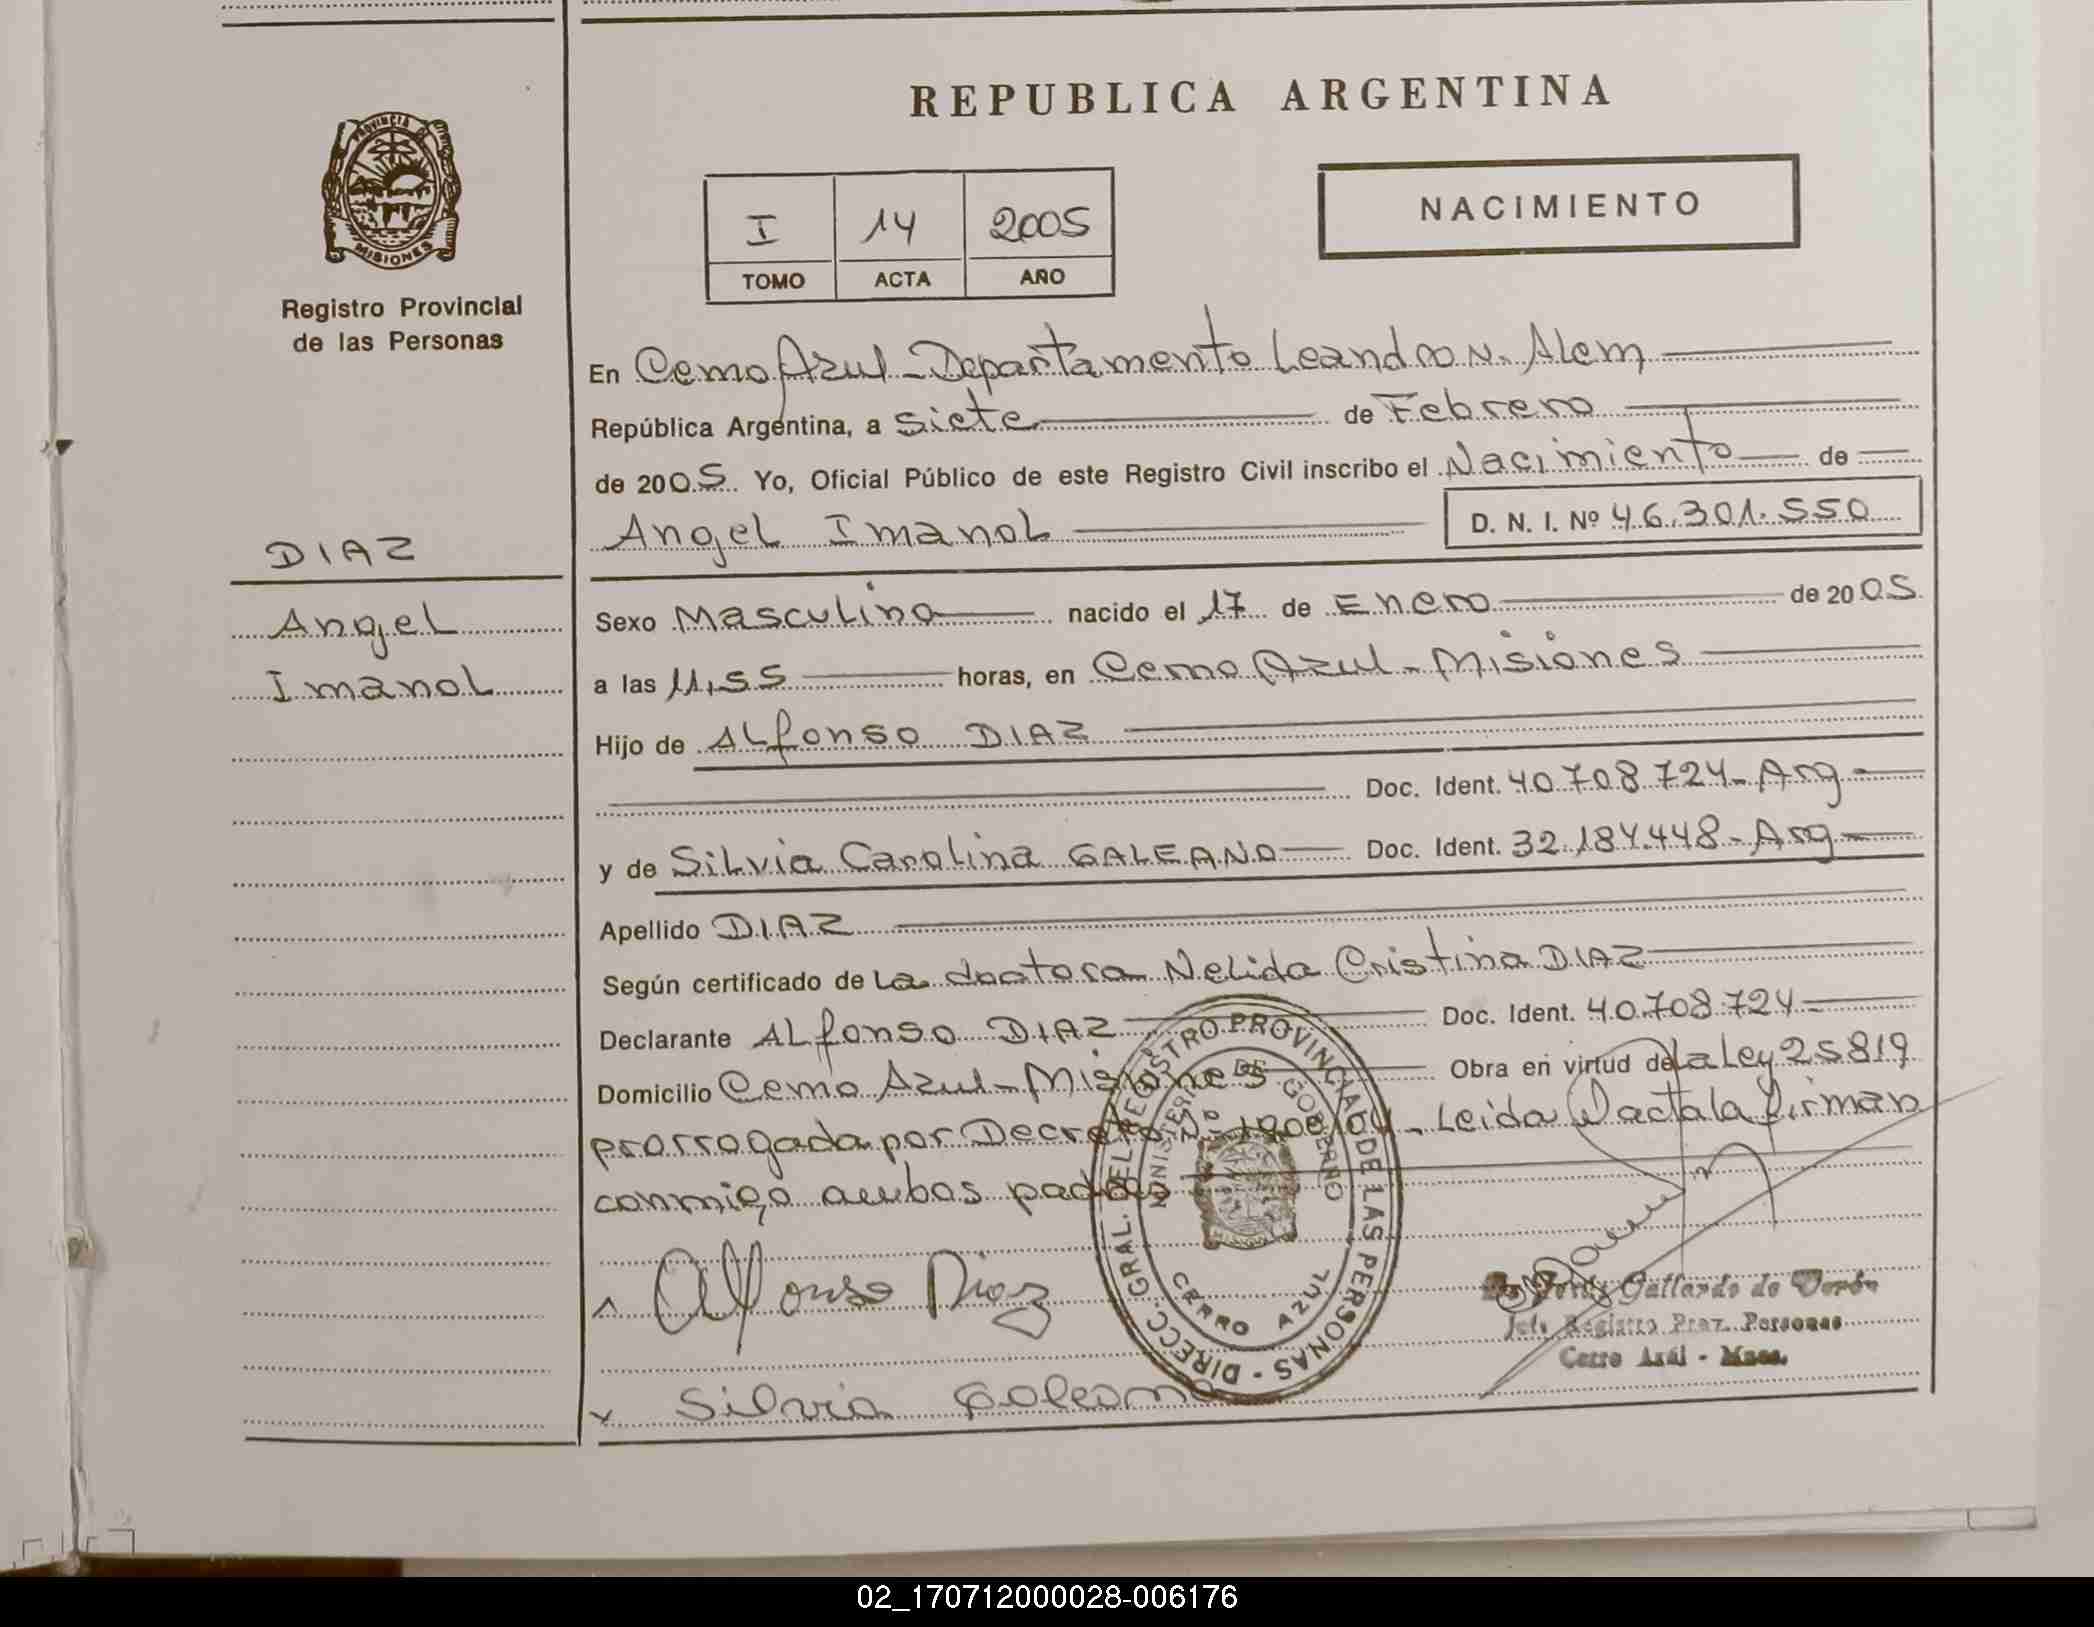 REPUBLICA ARGENTINA
PROVINCIA DE
MISIONES
Registro Provincial
de las Personas
I 14 2005
TOMO ACTA AÑO
NACIMIENTO
En Cerro Azul - Departamento Leandro N. Alem
República Argentina, a siete de Febrero
de 2005. Yo, Oficial Público de este Registro Civil inscribo el Nacimiento de
Angel Imanol D. N. I. Nº 46.301.550
DIAZ
Angel
Imanol
Sexo Masculino nacido el 17 de Enero de 2005
a las 11,55 horas, en Cerro Azul - Misiones
Hijo de Alfonso DIAZ
Doc. Ident. 40.708.724 - Arg
y de Silvia Carolina GALEANO Doc. Ident. 32.184.448 - Arg
Apellido DIAZ
Según certificado de La doctora Nelida Cristina DIAZ
Declarante Alfonso DIAZ Doc. Ident. 40.708.724
Domicilio Cerro Azul - Misiones Obra en virtud de la Ley 25819
prorrogada por Decreto Nº 1900/04 - Leida el acta la firman
conmigo ambos padres
DIRECC. GRAL. DEL REGISTRO PROVINCIAL DE LAS PERSONAS
MINISTERIO DE GOBIERNO
CERRO AZUL
Alfonso Diaz
Gallardo de
Jefe Registro Prov. Personas
Cerro Azul - Mnes.
x Silvia Galeano
02_170712000028-006176